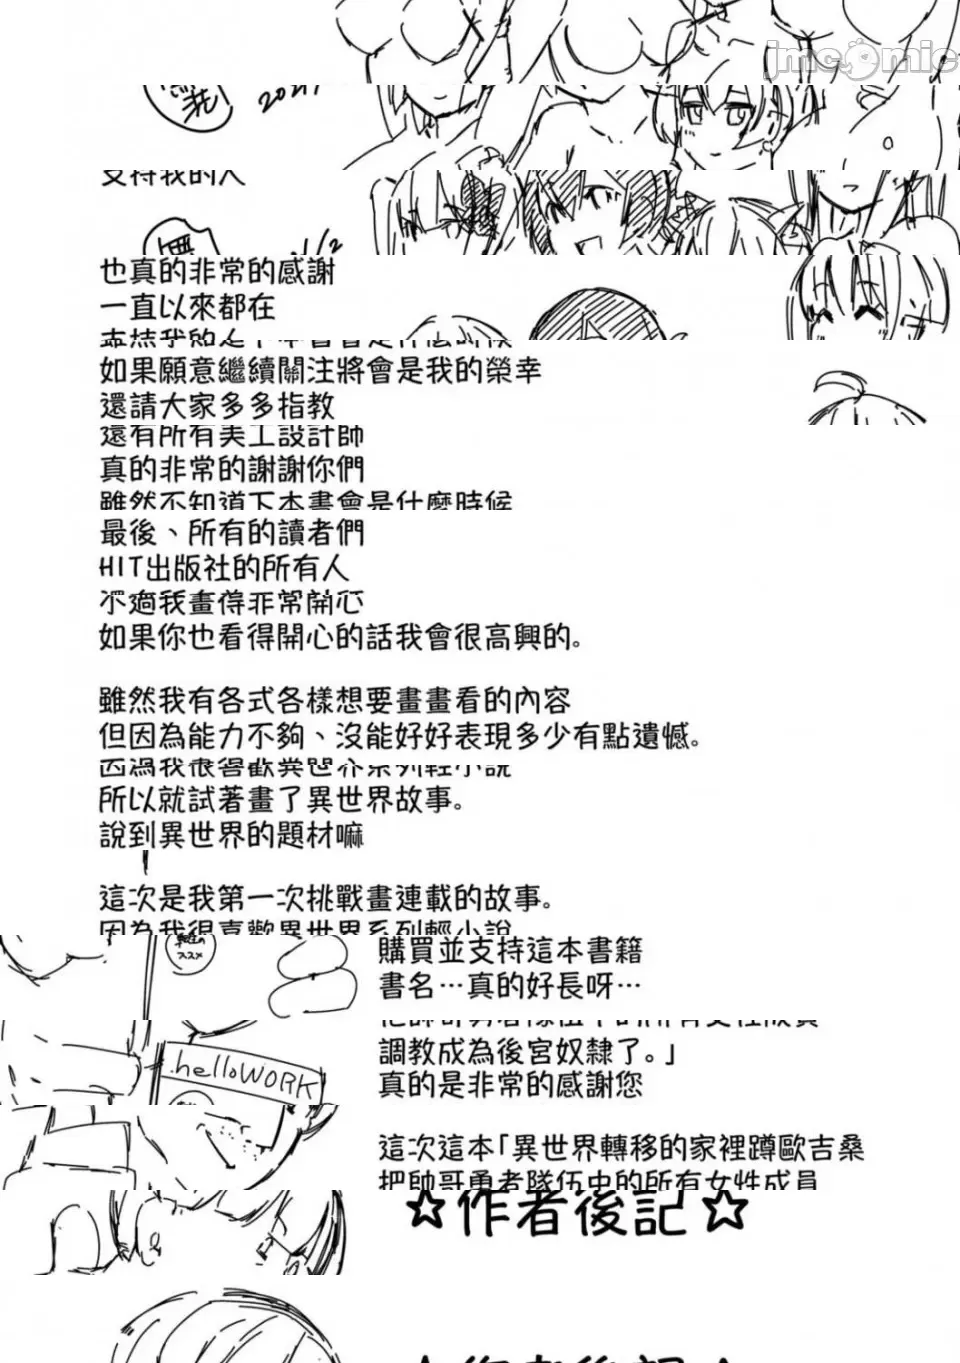 jmcomic
2021
支持我的人
1/2
也真的非常的感謝
一直以來都在
支持我的人
如果願意繼續關注將會是我的榮幸
還請大家多多指教
還有所有美工設計師
真的非常的謝謝你們
雖然不知道下本書會是什麼時候
最後、所有的讀者們
HIT出版社的所有人
不過我畫得非常開心
如果你也看得開心的話我會很高興的。
雖然我有各式各樣想要畫畫看的內容
但因為能力不夠、沒能好好表現多少有點遺憾。
因為我很喜歡異世界系列輕小說
所以就試著畫了異世界故事。
說到異世界的題材嘛
這次是我第一次挑戰畫連載的故事。
因為我很喜歡異世界系列輕小說
購買並支持這本書籍
書名…真的好長呀…
調教成為後宮奴隸了。」
helloWORK
真的是非常的感謝您
這次這本「異世界轉移的家裡蹲歐吉桑
把帥哥勇者隊伍中的所有女性成員
☆作者後記☆